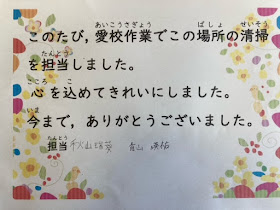 このたび，愛校作業でこの場所の清掃
を担当しました。
心を込めてきれいにしました。
今まで，ありがとうございました。
担当 青山